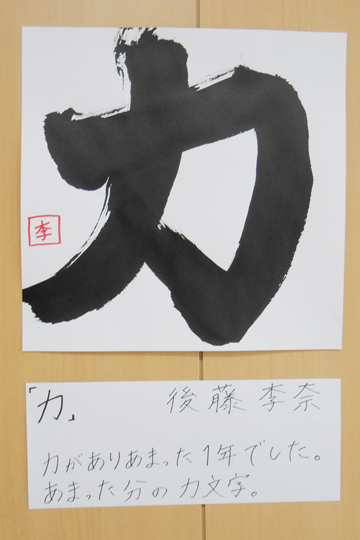 力
李
「力」 後藤李奈
力がありあまった1年でした。
あまった分の力文字。